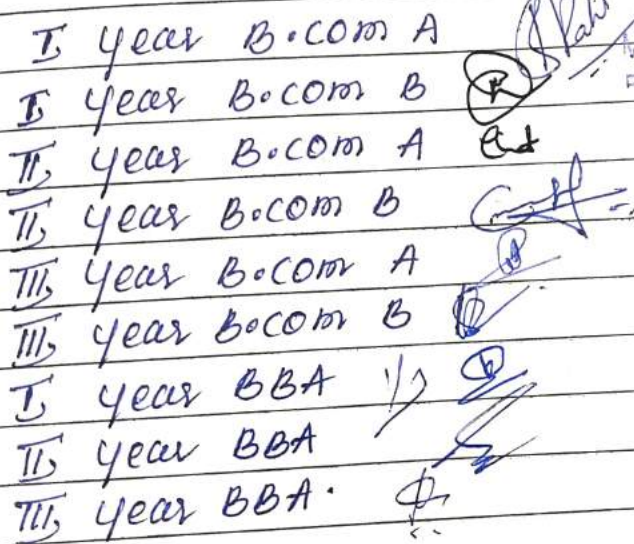 I, year B.com A
I, year B.com B
II, year B.com A
II, year B.com B
III, year B.com A
III, year B.com B
I, year BBA
II, year BBA
III, year BBA.